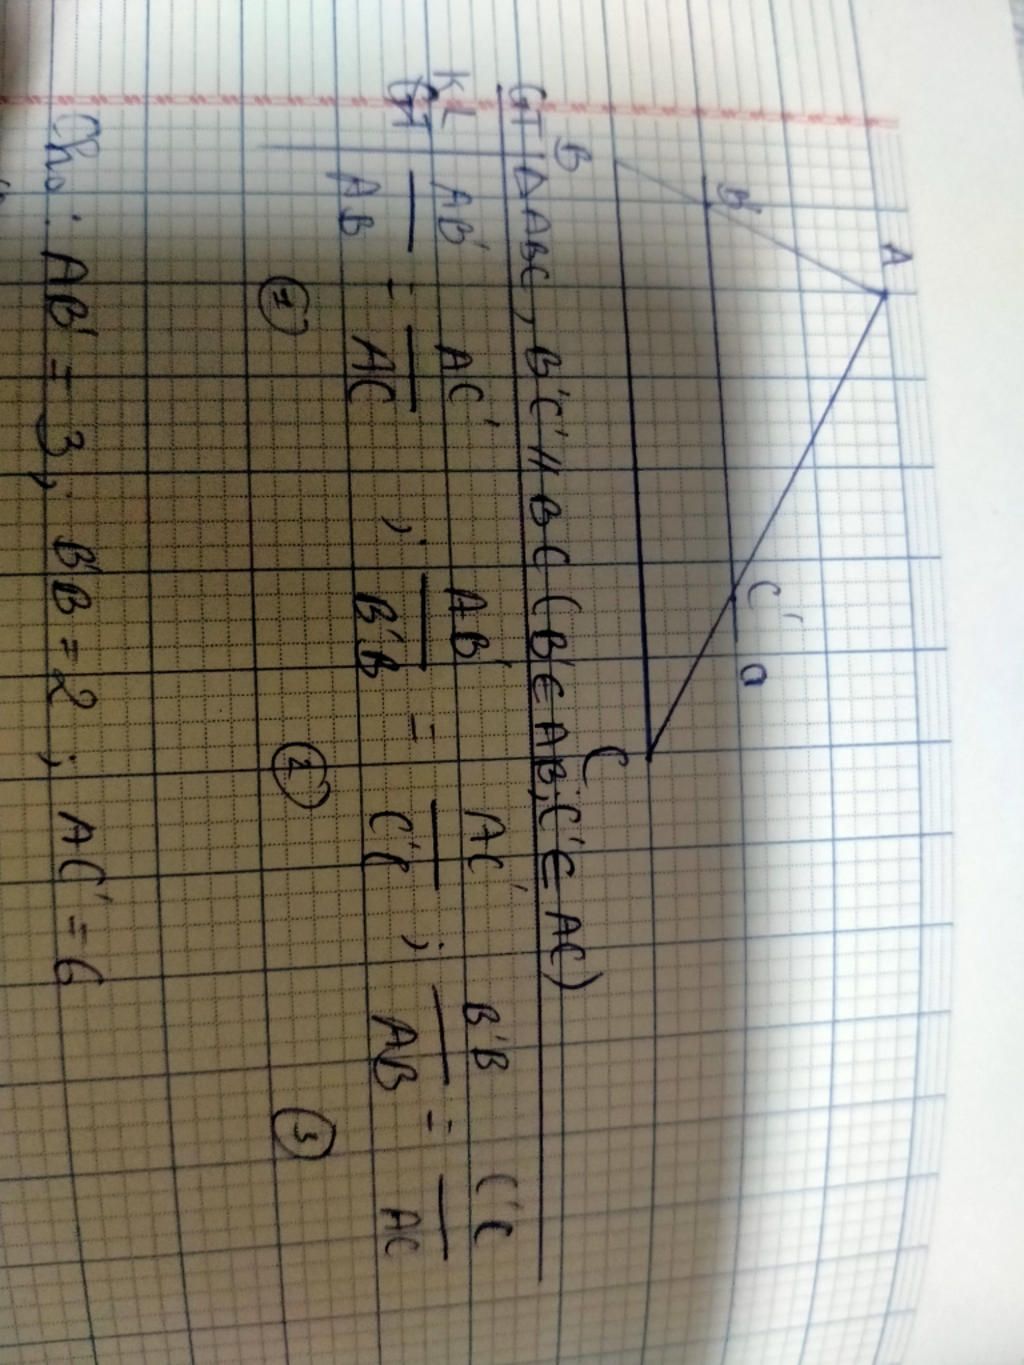 A
B' C' a
B C
GT | ΔABC, B'C' // BC (B'∈AB; C'∈AC)
KL AB'/AB = AC'/AC ; AB'/B'B = AC'/C'C ; B'B/AB = C'C/AC
① ② ③
Cho : AB' = 3; B'B = 2 ; AC' = 6